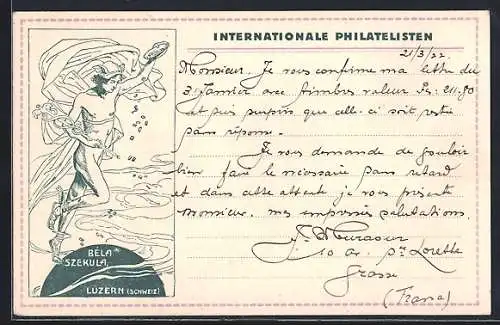 INTERNATIONALE PHILATELISTEN
21/3/22
Monsieur. Je vous confirme ma lettre du
3 Janvier avec timbres valeur 211.80
et suis surpris que celle-ci soit restée
sans réponse.
Je vous demande de vouloir
bien faire le nécessaire sans retard
et dans cette attente je vous présente
Monsieur mes empressées salutations.
10 av. Ste Lorette
Grasse
(France)
BÉLA
SZEKULA,
LUZERN (SCHWEIZ)